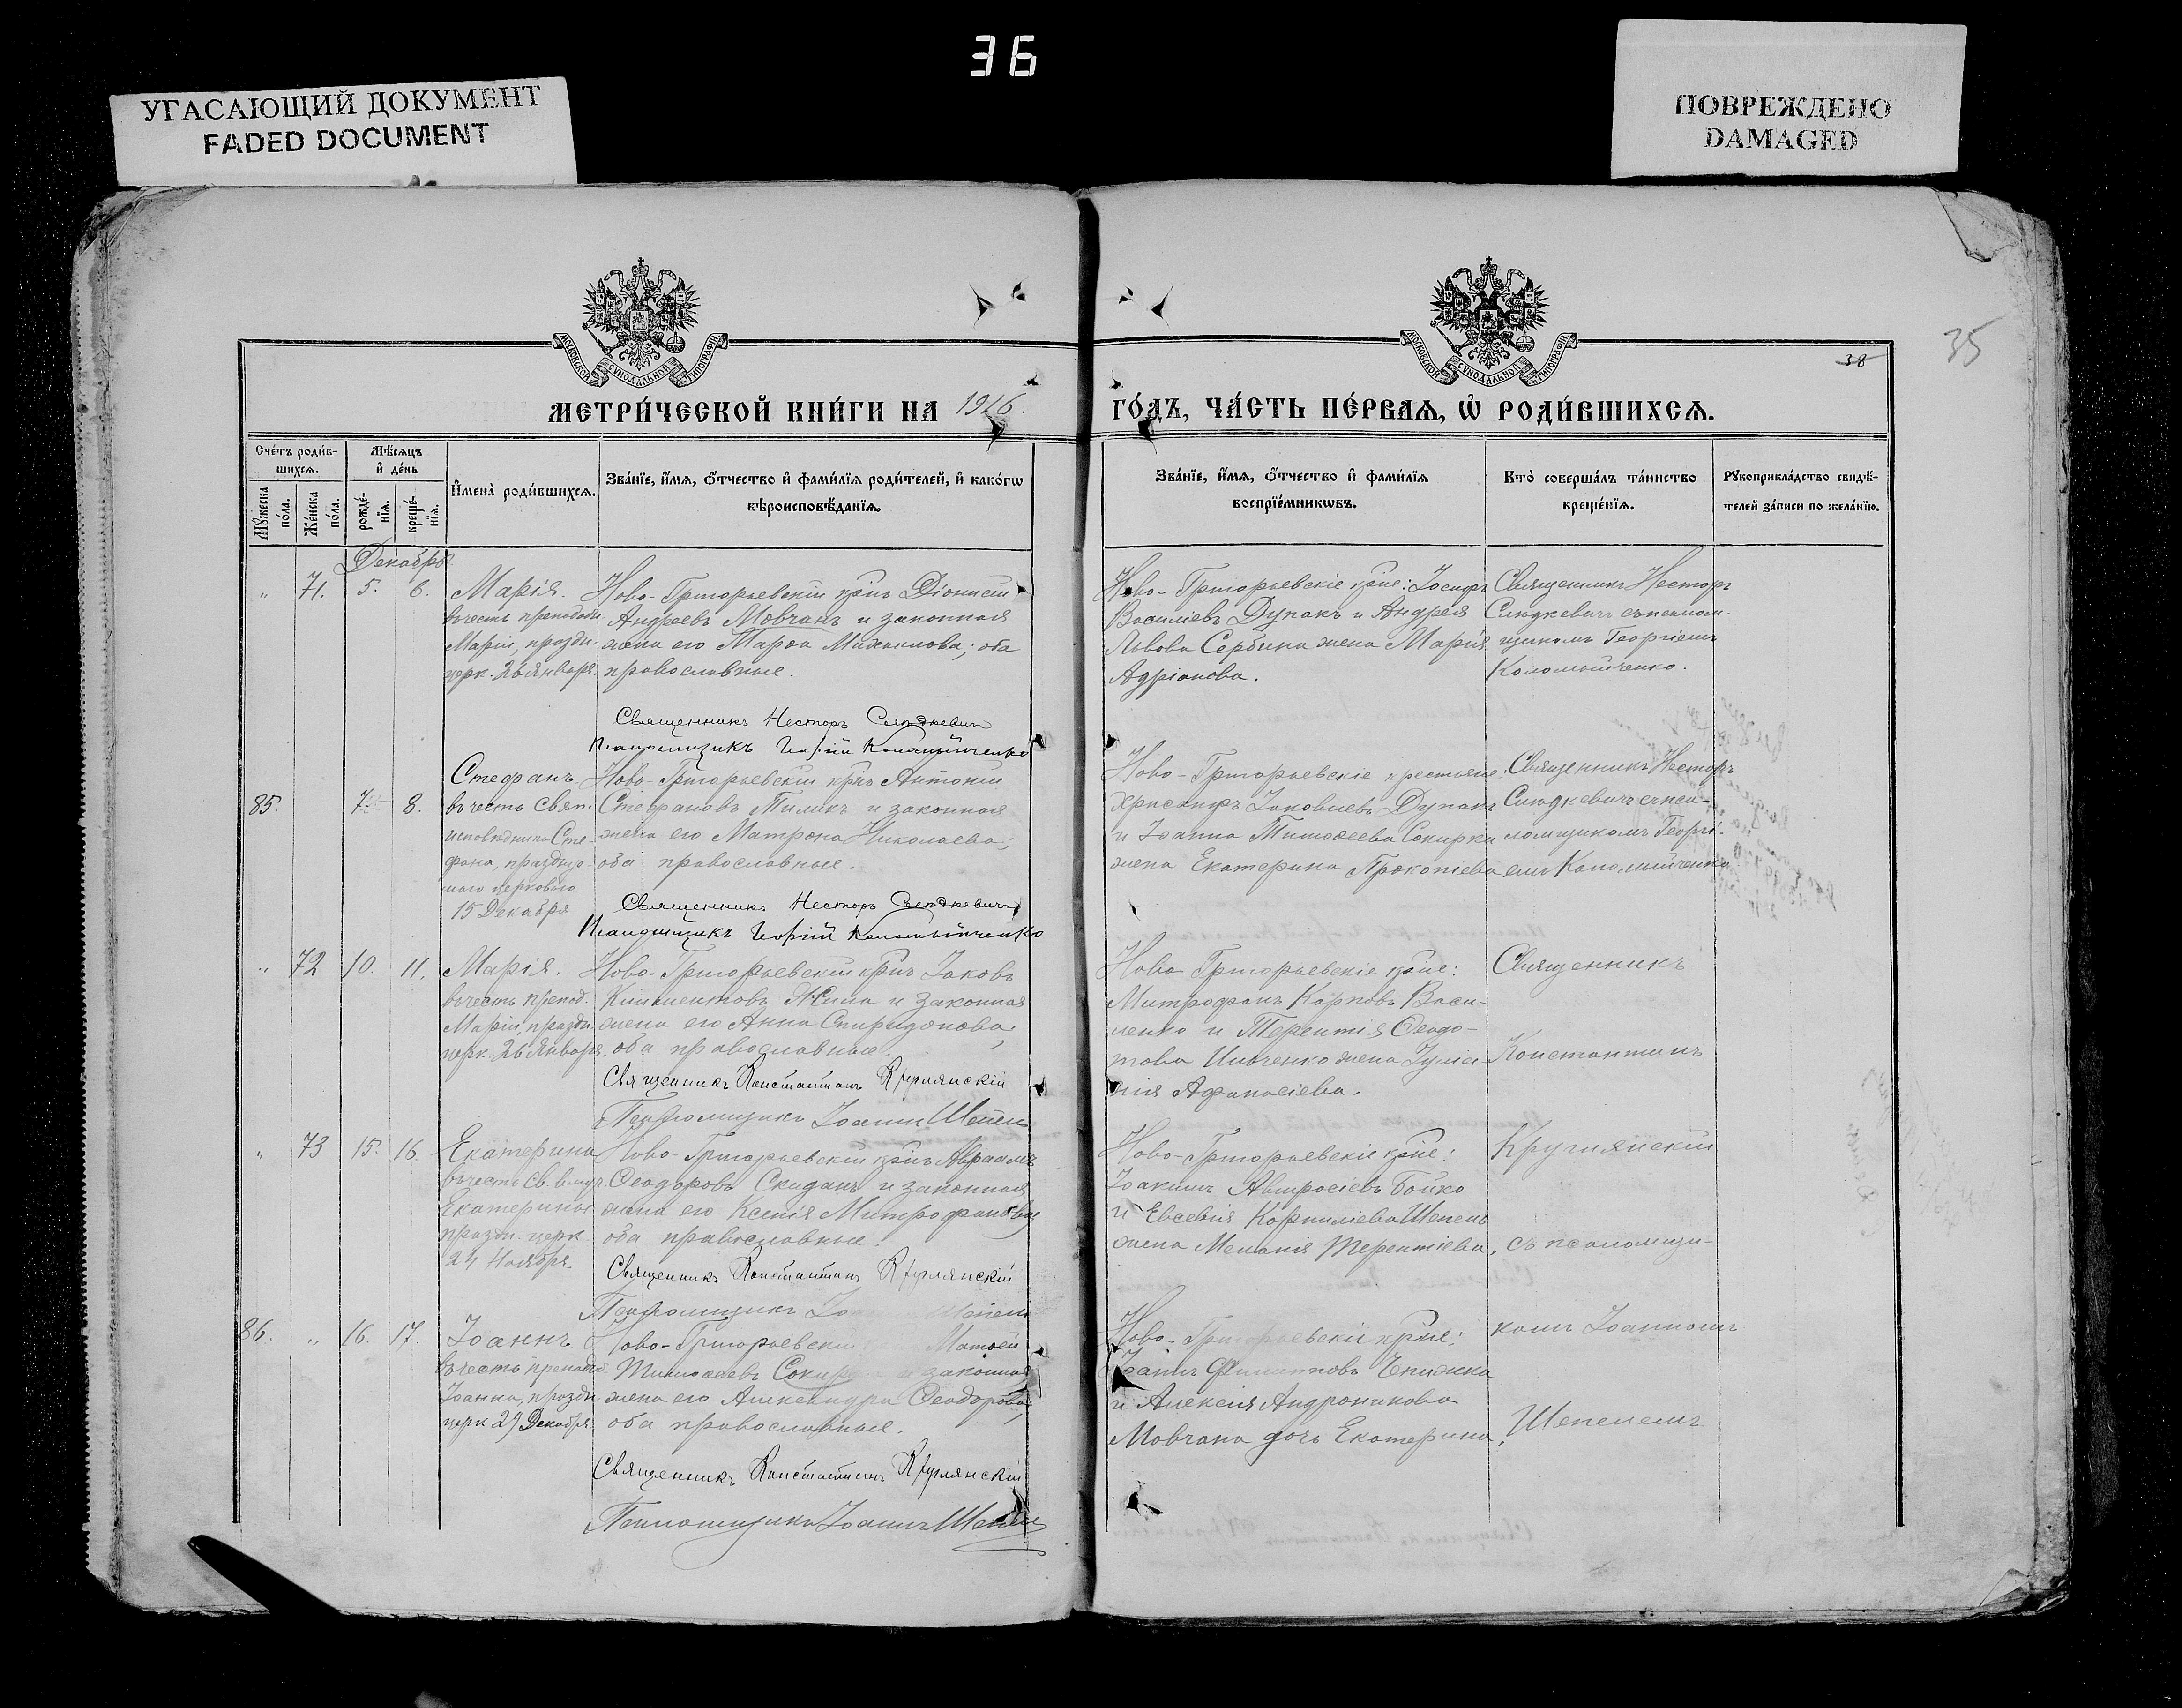 36
УГАСАЮЩИЙ ДОКУМЕНТ
FADED DOCUMENT
ПОВРЕЖДЕНО
DAMAGED
МОСКОВСКОЙ СУНОДАЛЬНОЙ ТИПОГРАФІИ
МОСКОВСКОЙ СУНОДАЛЬНОЙ ТИПОГРАФІИ
35
38
МЕТРИ́ЧЕСКОЙ КНИ́ГИ НА 1916.
ГО́ДЪ, ЧА́СТЬ ПЕ́РВАѦ, Ѡ҆ РОДИ́ВШИХСѦ.
Сче́тъ роди́в-
шихсѧ.
Мѣ́сѧцъ
и҆ де́нь
Мꙋ́жеска по́ла.
Же́нска по́ла.
рожде́-
нїѧ.
креще́-
нїѧ.
И҆мена̀ роди́вшихсѧ.
Зва́нїе, и҆́мѧ, ѻ҆́тчество и҆ фами́лїѧ роди́телей, и҆ како́гѡ
вѣроисповѣ́данїѧ.
Зва́нїе, и҆́мѧ, ѻ҆́тчество и҆ фами́лїѧ
воспрїе́мникѡвъ.
Кто̀ соверша́лъ та́инство
креще́нїѧ.
Рꙋкоприкла́дство свидѣ́-
телей за́писи по жела́нїю.
Декабрь
„ 71. 5. 6.
Марія.
въ честь преподоб.
Маріи, праздн.
церк. 26 Января.
Ново-Григорьевскій крнъ Діонисій
Андреевъ Мовчанъ и законная
жена его Марѳа Михаилова; оба
православные.
Священникъ Несторъ Слюдкевич
Псаломщикъ Георгій Коломыйченко
Ново-Григорьевскіе крне: Іосифъ
Василіевъ Дупакъ и Андрея
Львова Сербина жена Марія
Адріанова.
Священникъ Несторъ
Слюдкевичъ съ псалом-
щикомъ Георгіемъ
Коломыйченко.
85. 7 8.
Стефанъ
въ честь Свят.
исповѣдника Сте-
фана, праздну-
маго церковію
15 Декабря
Ново-Григорьевскій крнъ Антоній
Стефановъ Тимикъ и законная
жена его Матрона Николаева;
оба православные.
Священникъ Несторъ Слюдкевичъ
Псаломщикъ Георгій Коломыйченко
Ново-Григорьевскіе крестьяне:
Хрисанфъ Іаковлевъ Дупакъ
и Іоанна Тимоѳеева Сокирки
жена Екатерина Прокопіева
Священникъ Несторъ
Слюдкевичъ съ пса-
ломщикомъ Георгі-
емъ Коломыйченко
„ 72 10. 11.
Марія.
въ честь препод.
Маріи, праздн.
церк. 26 Января.
Ново-Григорьевскій крнъ Іаковъ
Климентовъ Жила и законная
жена его Анна Спиридонова,
оба православные.
Священникъ Константинъ Круглянскій
Псаломщикъ Іоаннъ Шепель
Ново-Григорьевскіе крне:
Митрофанъ Карповъ Васи-
ленко и Терентія Ѳеодо-
това Ивченко жена Іуліа-
нія Афанасіева.
Священникъ
Константинъ
„ 73 15. 16.
Екатерина
въ честь Св. вмуч.
Екатерины
праздн. церк.
24 Ноября.
Ново-Григорьевскій крнъ Авраамъ
Ѳеодоровъ Скиданъ и законная
жена его Ксенія Митрофанова
оба православные.
Священникъ Константинъ Круглянскій
Псаломщикъ Іоаннъ Шепель
Ново-Григорьевскіе крне:
Іоакимъ Амвросіевъ Бойко
и Евсевія Корниліева Шепель
жена Меланія Терентіева.
Круглянскій
съ псаломщи-
86. „ 16. 17.
Іоаннъ
въ честь преподоб.
Іоанна, праздн.
церк 29 Декабря.
Ново-Григорьевскій Матѳей
Тимоѳеевъ Сокирка и законная
жена его Александра Ѳеодорова,
оба православные.
Священникъ Константинъ Круглянскій
Псаломщикъ Іоаннъ Шепель
Ново-Григорьевскіе крне:
Іоаннъ Филипповъ Книжка
и Алексія Андроникова
Мовчана дочь Екатерина.
комъ Іоанномъ
Шепелемъ